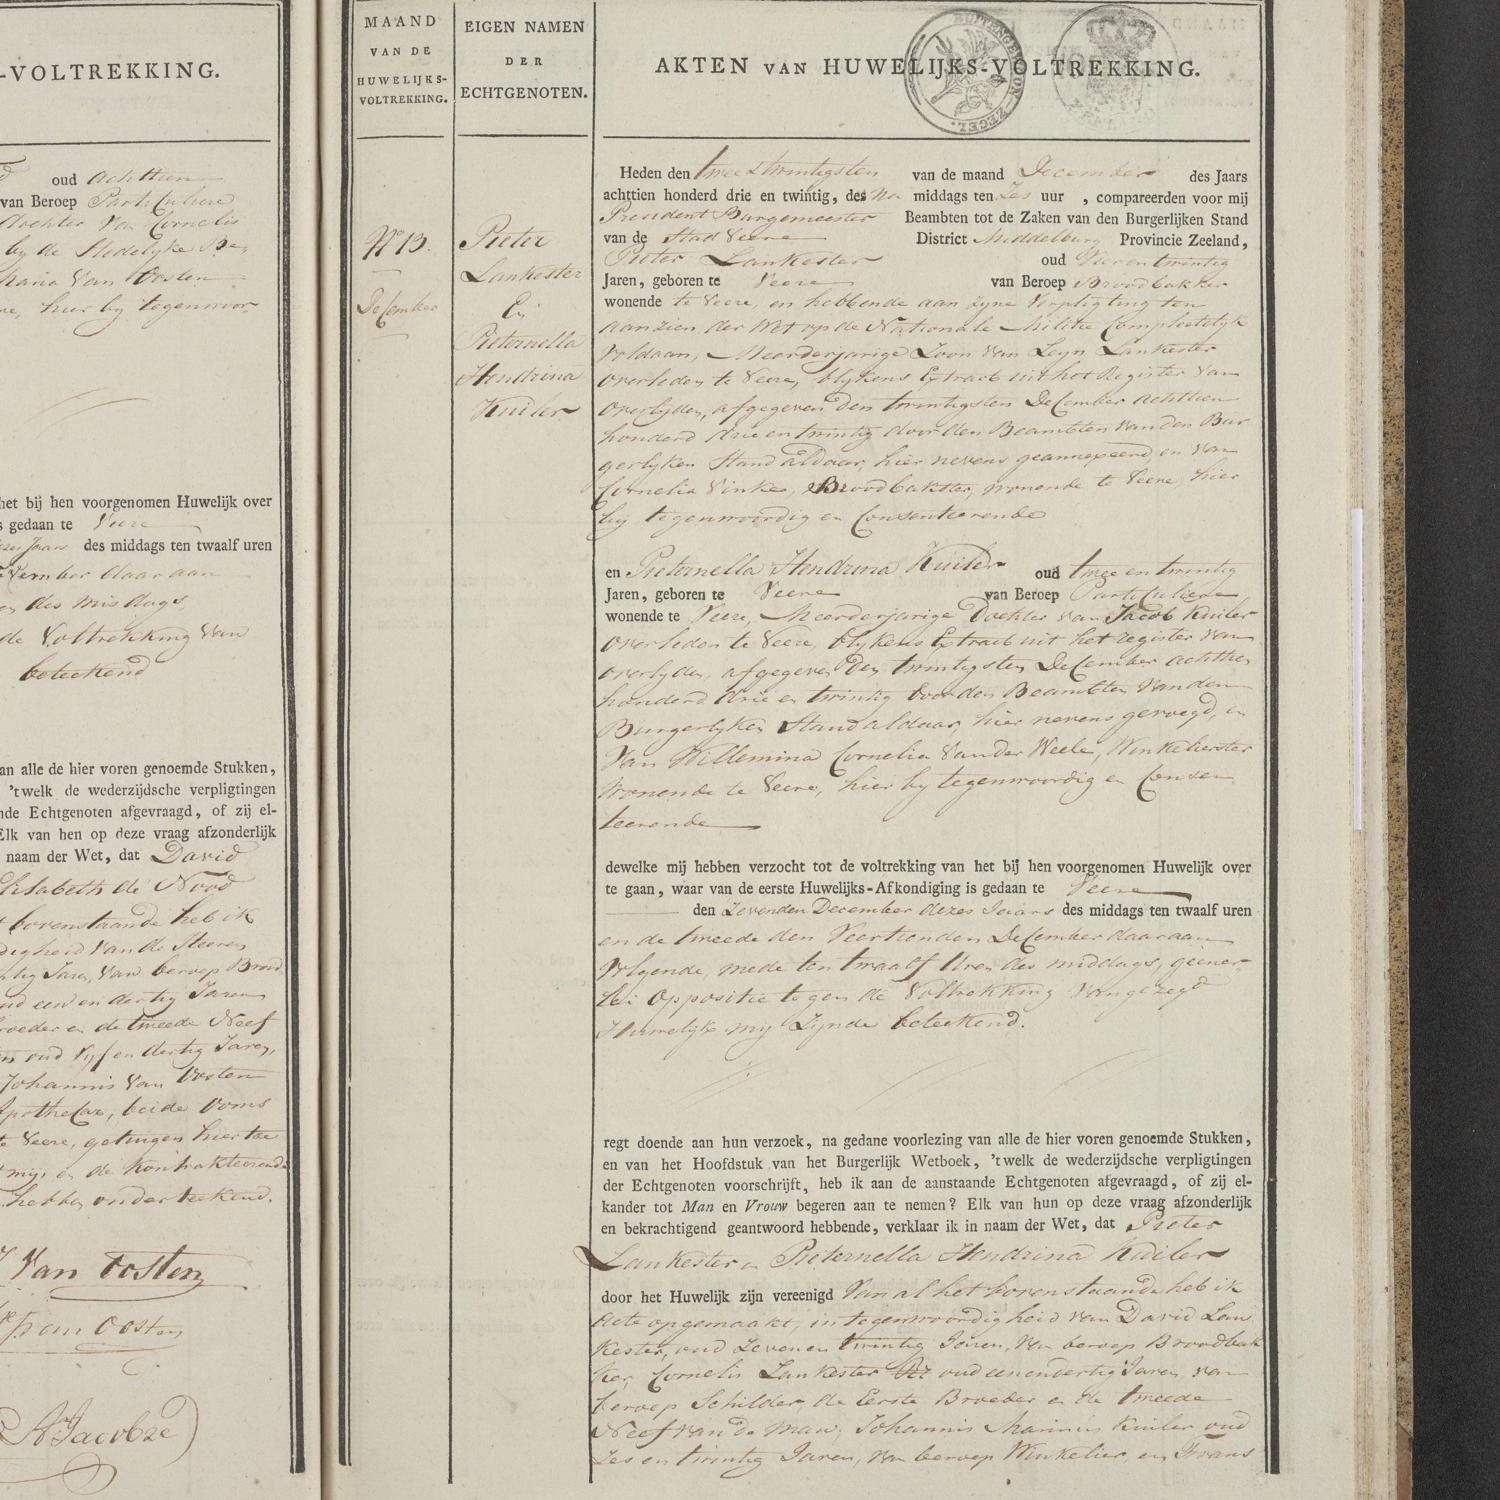 -VOLTREKKING.
oud achttien
van Beroep Particuliere
dochter van Cornelis
by de Stedelyke Be
Maria van Oosten
hier by tegenwoor
het bij hen voorgenomen Huwelijk over
s gedaan te Veere
dezes Jaars des middags ten twaalf uren
december daaraan
des middags
de Voltrekking van
beteekend
an alle de hier voren genoemde Stukken,
'twelk de wederzijdsche verpligtingen
nde Echtgenoten afgevraagd, of zij el-
Elk van hen op deze vraag afzonderlijk
naam der Wet, dat David
Elisabeth de Nood
bovenstaande heb ik
van de Heeren
tig Jaren, van beroep Brood
oud een en dertig Jaren
broeder en de tweede Neef
oud vyf en dertig Jaren,
Johannis van Oosten
Apothecar, beide Ooms
te Veere, getuigen hier toe
mij, en de Kontrakteerende
hebben onderteekend.
Van Oosten
van Oosten
A Jacobze
MAAND
VAN DE
HUWELIJKS-
VOLTREKKING.
EIGEN NAMEN
DER
ECHTGENOTEN.
AKTEN VAN HUWELIJKS-VOLTREKKING.
BUITENGEWOON ZEGEL.
No 13.
December
Pieter
Lankester
En
Pieternella
Hendrina
Kuiler
Heden den twee & twintigsten van de maand December des Jaars
achttien honderd drie en twintig, des Na middags ten Zes uur , compareerden voor mij
President Burgemeester Beambten tot de Zaken van den Burgerlijken Stand
van de Stad Veere District Middelburg Provincie Zeeland,
Pieter Lankester oud Vier en twintig
Jaren, geboren te Veere van Beroep Broodbakker
wonende te Veere, en hebbende aan zyne Verpligting ten
aanzien der Wet op de Nationale Militie Compleetelyk
voldaan, Meerderjarige Zoon van Leyn Lankester
overleden te Veere, blykens Extract uit het Register van
overlyden, afgegeven den twintigsten December achttien
honderd drie en twintig door den Beambten van den Bur
gerlyken Stand aldaar, hier nevens geannexeerd, en van
Cornelia Vinke, Broodbakster, wonende te Veere, hier
by tegenwoordig en Consenteerende
en Pieternella Hendrina Kuiler oud twee en twintig
Jaren, geboren te Veere van Beroep Particuliere
wonende te Veere, Meerderjarige Dochter van Jacob Kuiler
overleden te Veere, blykens Extract uit het register van
overlyden, afgegeven den twintigsten December achttien
honderd drie en twintig door den Beambten van den
Burgerlyken Stand aldaar, hier nevens gevoegd, en
Van Willemina Cornelia van der Weele, Winkelierster
Wonende te Veere, hier by tegenwoordig en Consen
teerende
dewelke mij hebben verzocht tot de voltrekking van het bij hen voorgenomen Huwelijk over
te gaan, waar van de eerste Huwelijks-Afkondiging is gedaan te Veere
den Zevenden December dezes Jaars des middags ten twaalf uren
en de tweede den Veertienden December daar aan
volgende, mede ten twaalf Uren des middags, geener
lei oppositie tegen de Voltrekking van gezegd
Huwelijk my Zynde beteekend.
regt doende aan hun verzoek, na gedane voorlezing van alle de hier voren genoemde Stukken,
en van het Hoofdstuk van het Burgerlijk Wetboek, 'twelk de wederzijdsche verpligtingen
der Echtgenoten voorschrijft, heb ik aan de aanstaande Echtgenoten afgevraagd, of zij el-
kander tot Man en Vrouw begeren aan te nemen? Elk van hun op deze vraag afzonderlijk
en bekrachtigend geantwoord hebbende, verklaar ik in naam der Wet, dat Pieter
Lankester en Pieternella Hendrina Kuiler
door het Huwelijk zijn vereenigd Van al het bovenstaande heb ik
acte opgemaakt, in tegenwoordigheid van David Lan
kester, oud Zeven en twintig Jaren, van beroep Broodbak
ker, Cornelis Lankester oud een en dertig Jaren van
beroep Schilder, de Eerste Broeder en de tweede
Neef van de man, Johannis Marinus Kuiler oud
Zes en twintig Jaren, van beroep Winkelier, en Frans